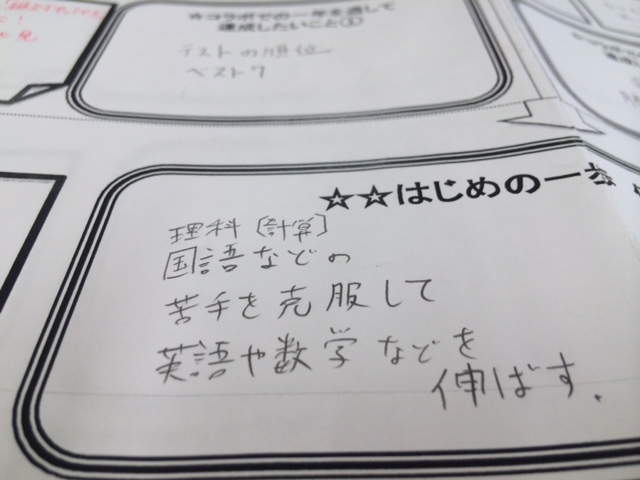 ☆コラボでの一年を通して
達成したいこと①
テストの順位
ベスト7
☆☆はじめの一歩
理科〔計算〕
国語などの
苦手を克服して
英語や数学などを
伸ばす.